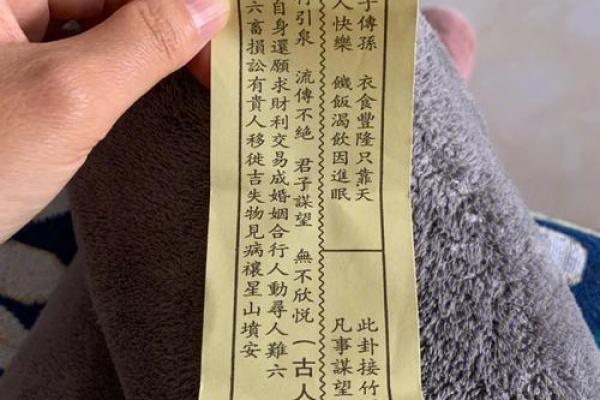 子傳孫 衣食豐隆只靠天
人快樂 饑飯渴飲因進眠
此卦接竹
凡事謀望
竹引泉 流傳不絕 君子謀望 無不欣悅 (古人
自身還願求財利交易成婚姻合行人動尋人難六
六畜損訟有貴人移徙吉失物見病禳星山墳安